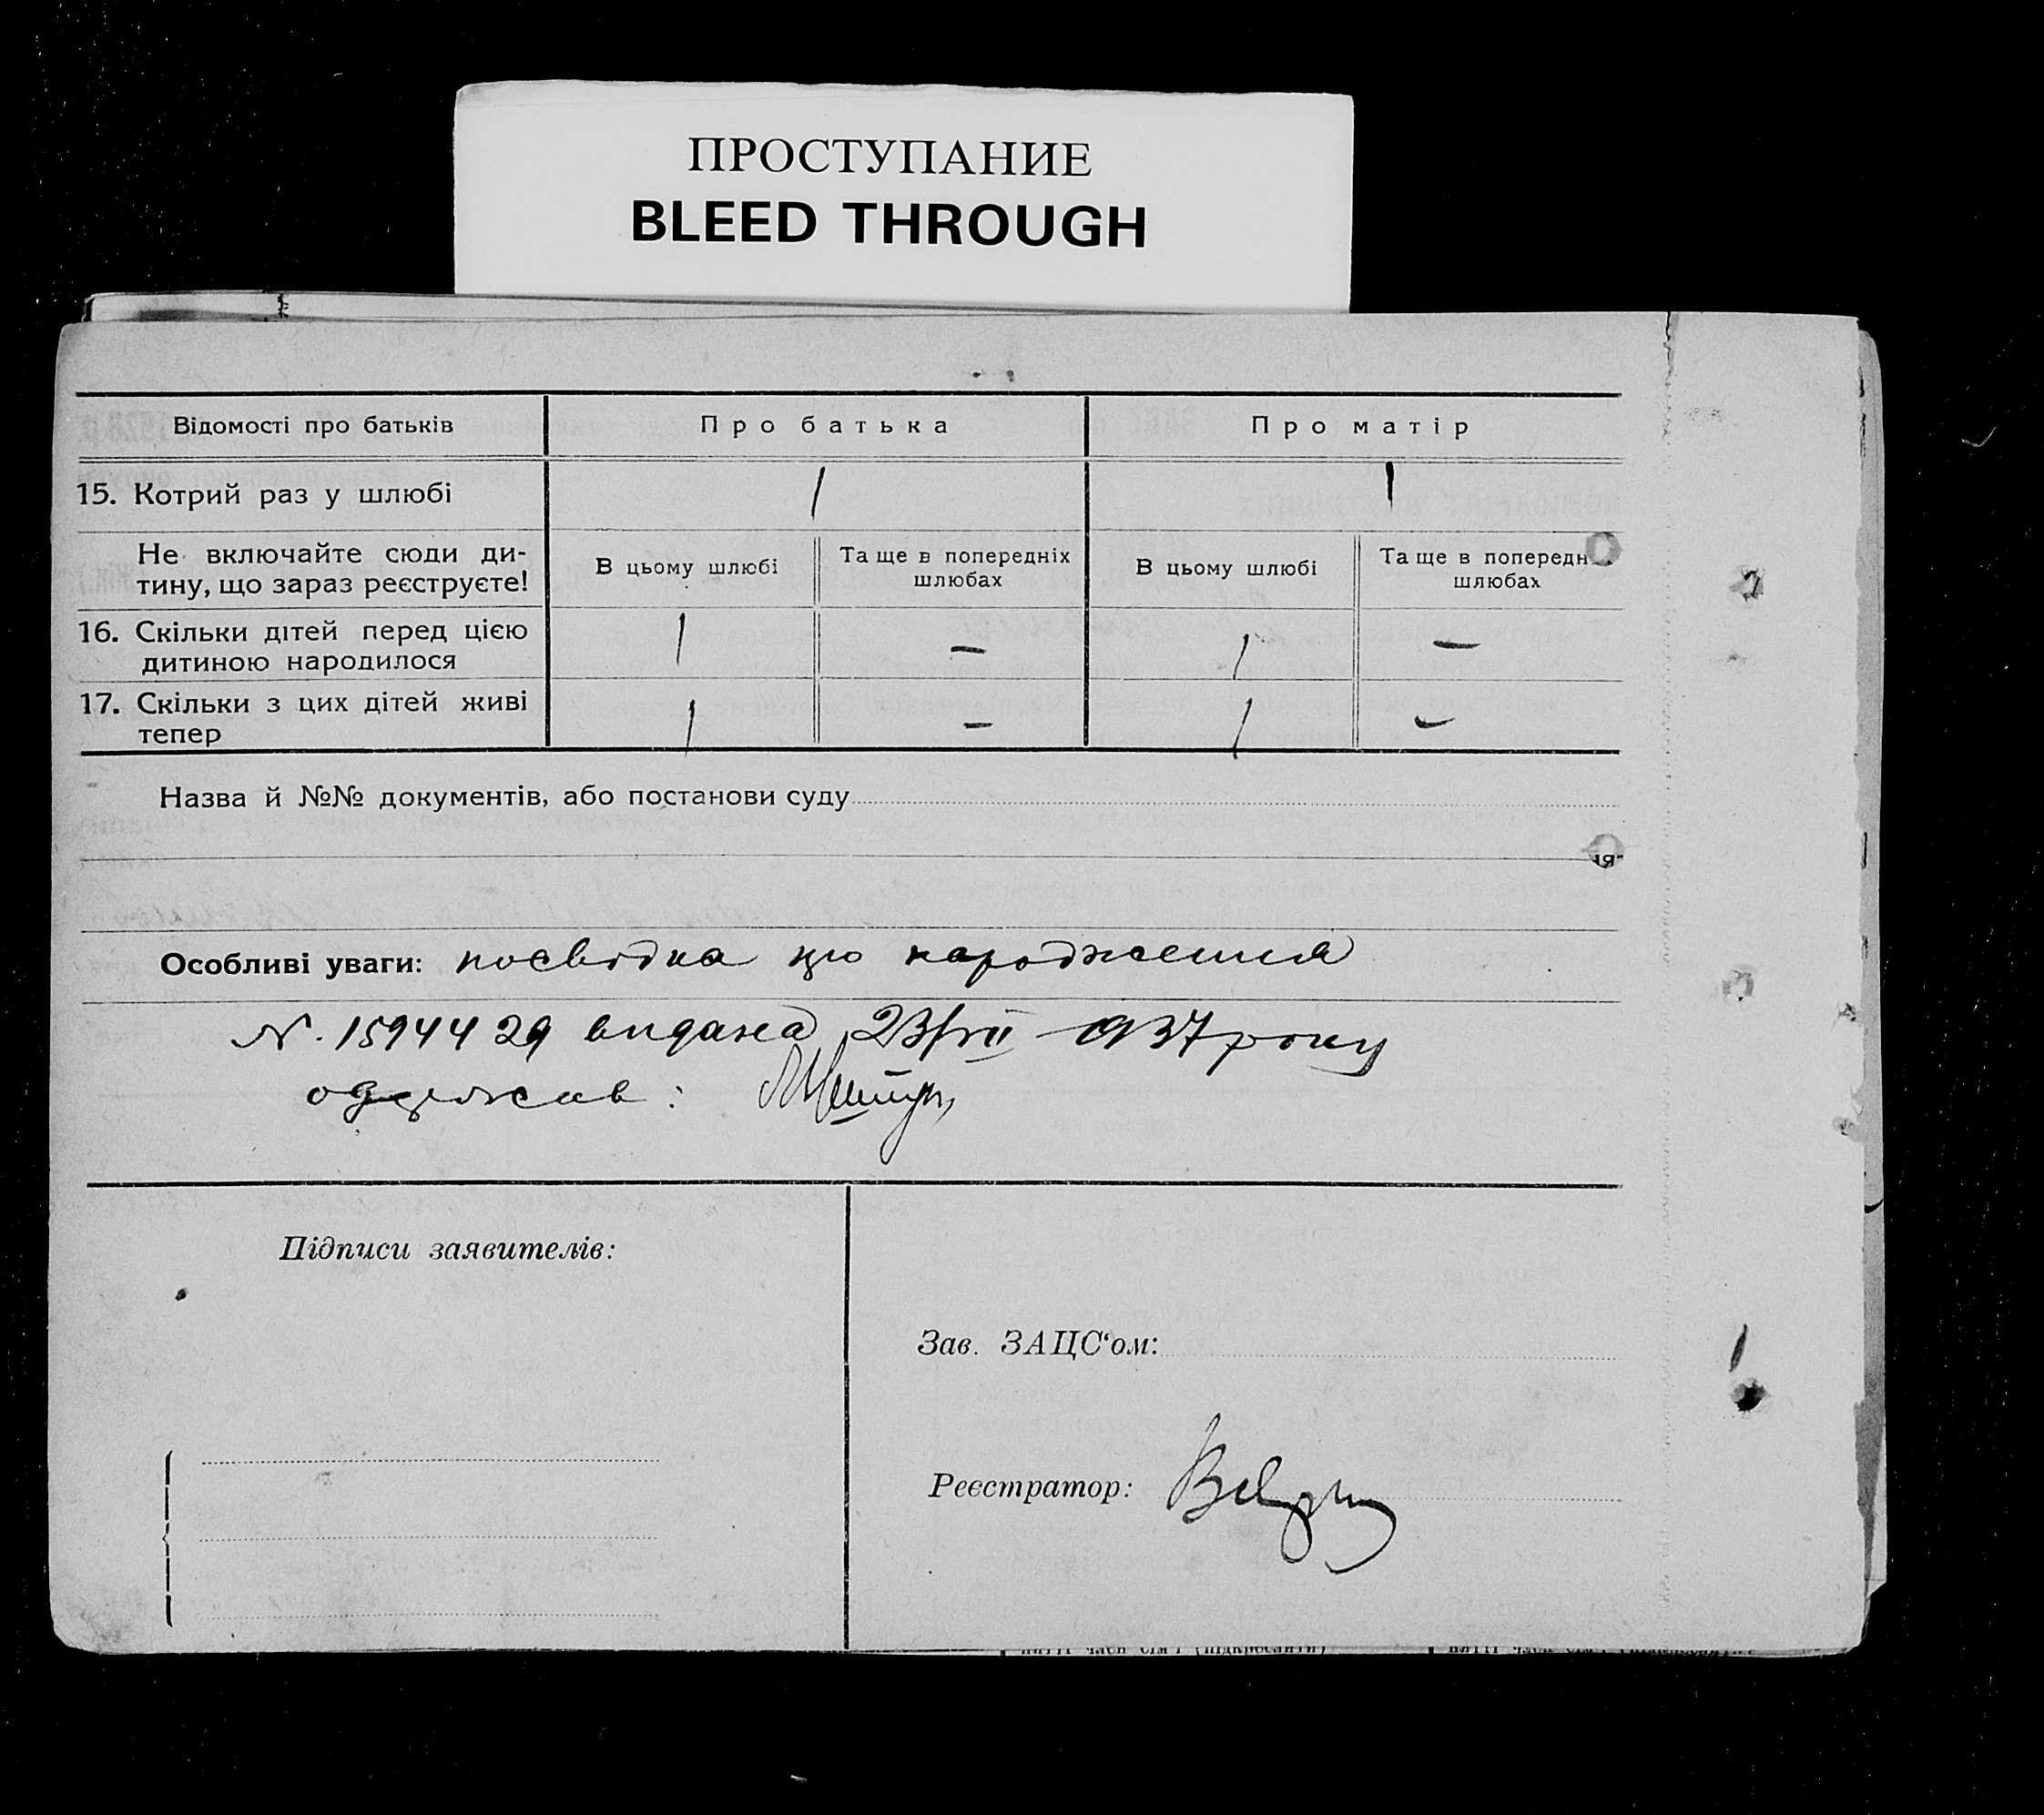 ПРОСТУПАНИЕ
BLEED THROUGH
Відомості про батьків
Про батька
Про матір
15. Котрий раз у шлюбі
1
1
Не включайте сюди ди-
тину, що зараз реєструєте!
В цьому шлюбі
Та ще в попередніх
шлюбах
В цьому шлюбі
Та ще в попередн
шлюбах
16. Скільки дітей перед цією
дитиною народилося
1
—
1
—
17. Скільки з цих дітей живі
тепер
1
—
1
—
Назва й №№ документів, або постанови суду
Особливі уваги: посвідка народження
N. 1594429 видана 23/VII 1937 року
одержав:
Підписи заявителів:
Зав. ЗАЦС'ом:
Реєстратор: